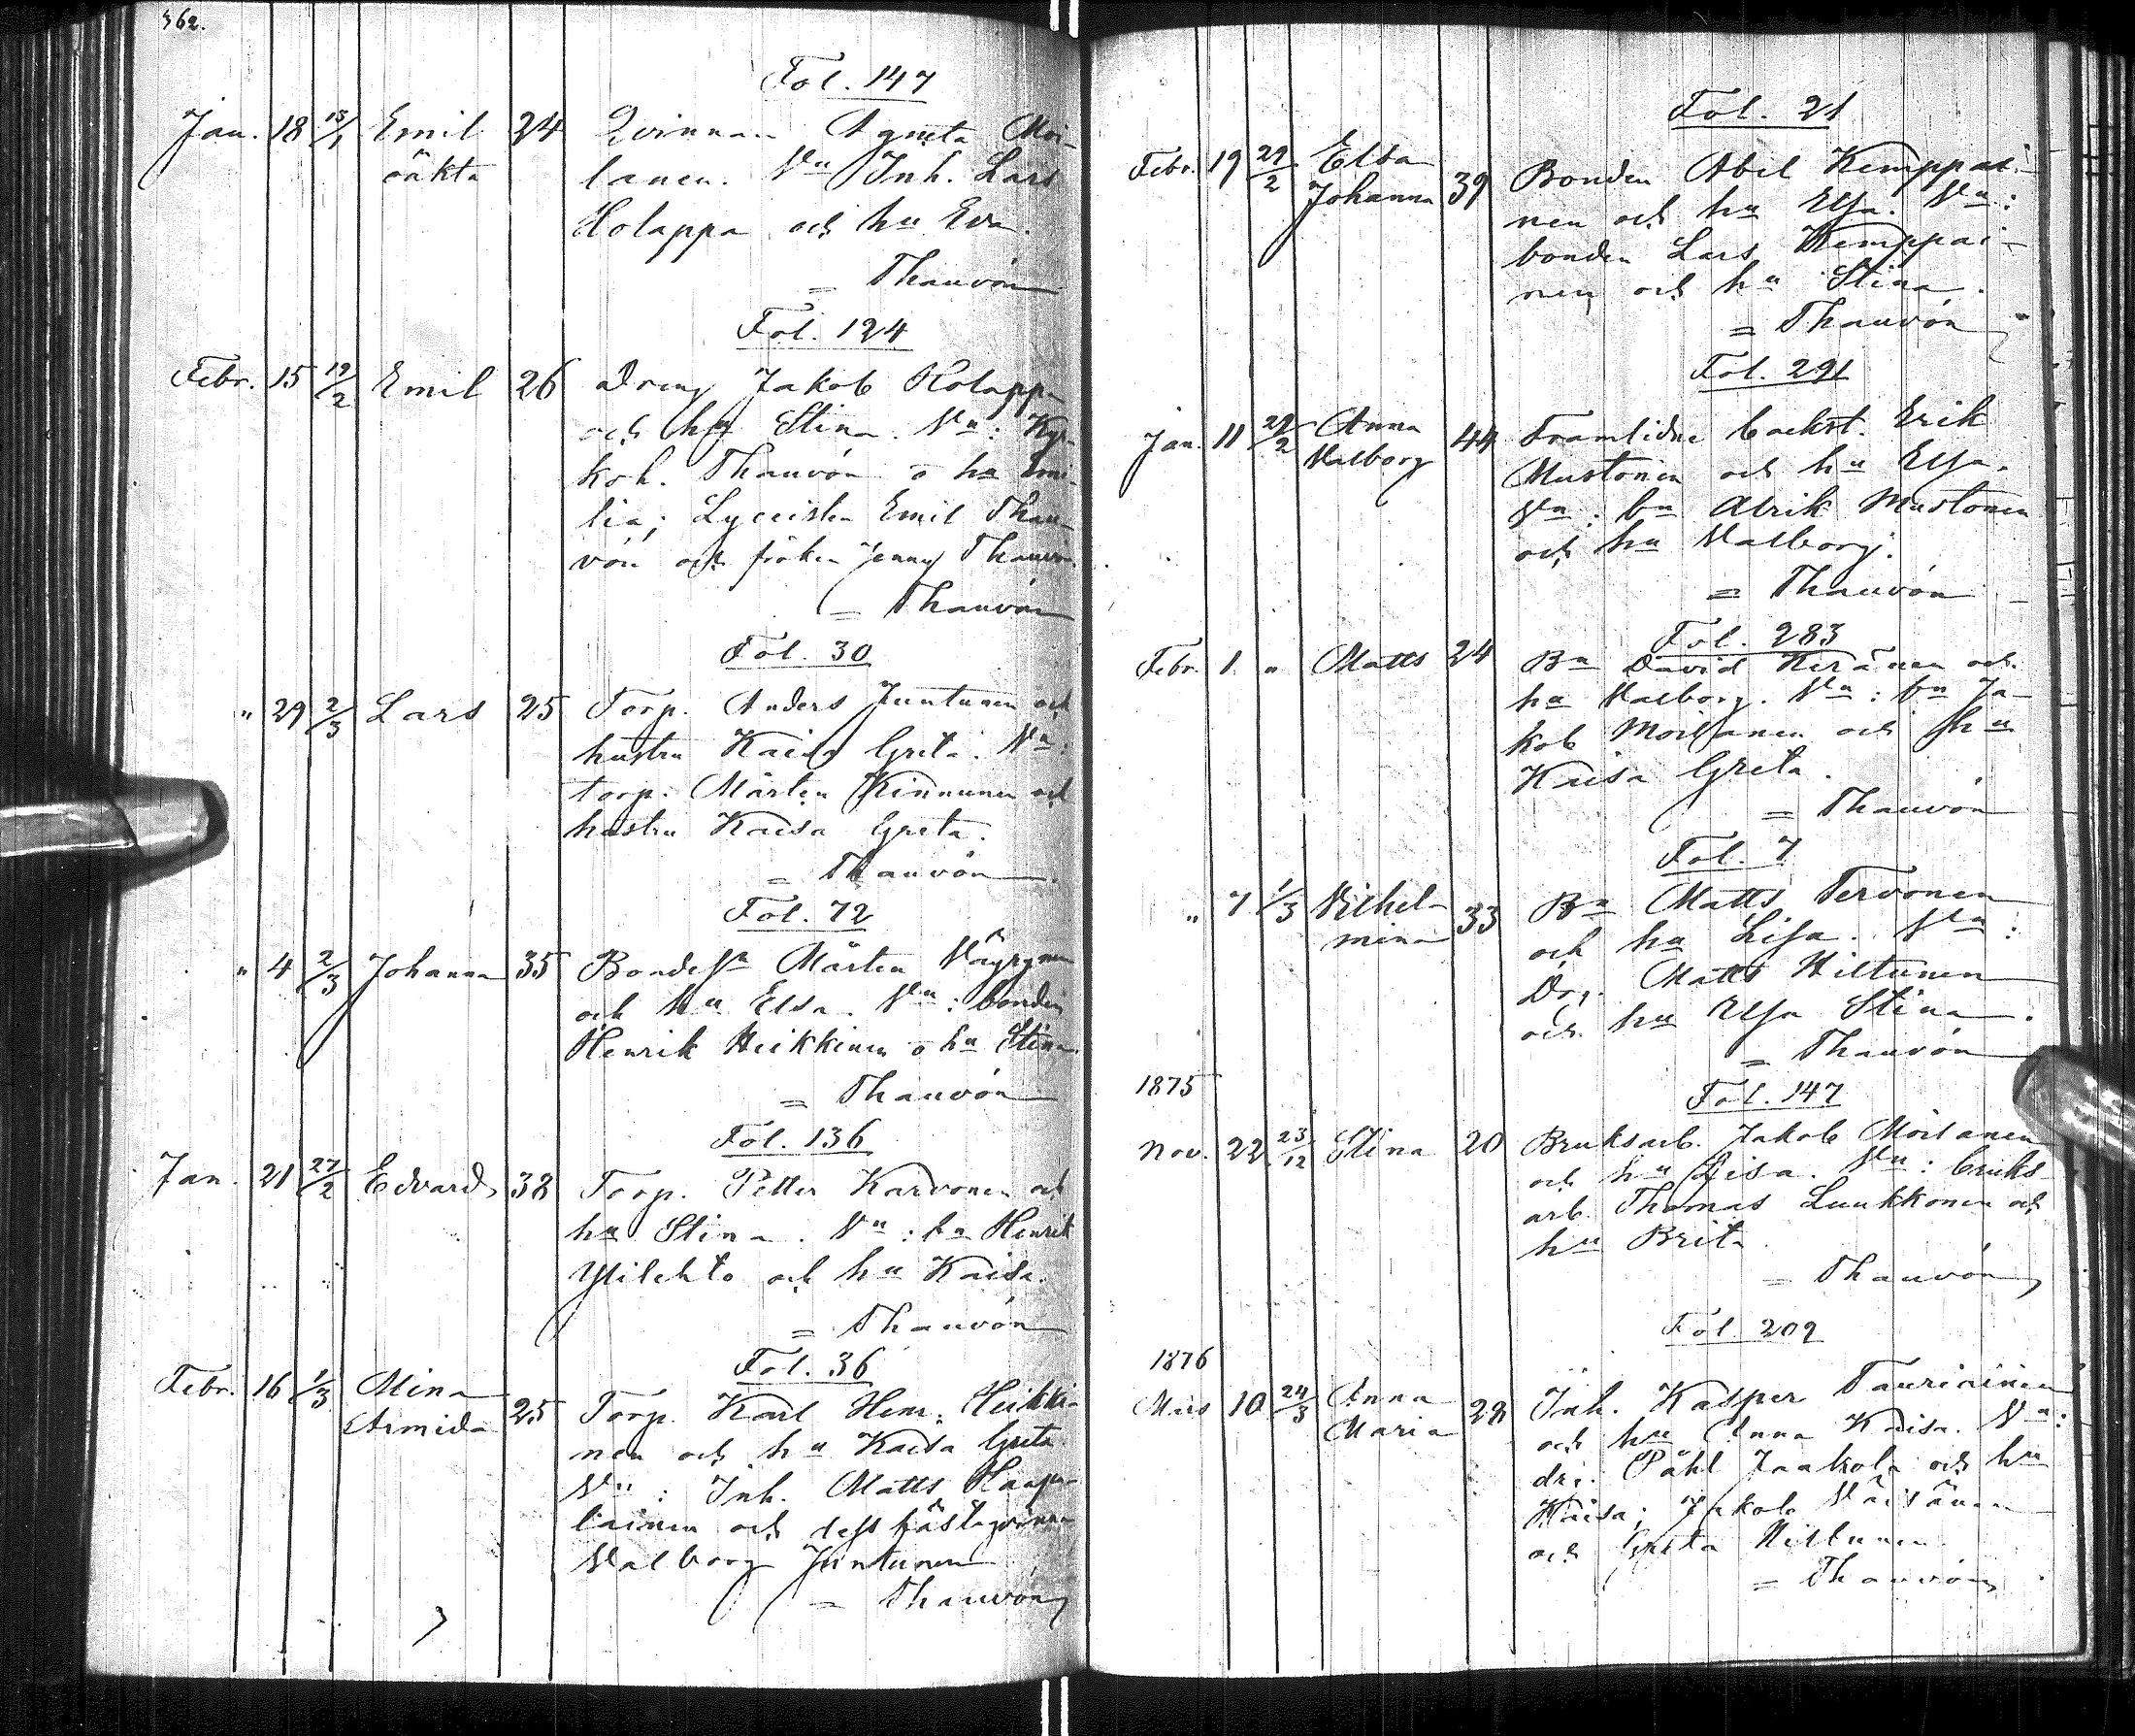 362.
Fol. 147
Jan. 18 18/1 Emil 24 Qvinnan Agneta Moi-
oäkta lanen. Vn Inh. Lars
Holappa och hu Eva.
= Thauvón
Fol. 124
Febr. 15 19/2 Emil 26 Dreng Jakob Holappa
och hu Stina. Vn: Kyr-
koh. Thauvón o hu Emi-
lia; Lyceisten Emil Thau-
vón och fröken Jenny Thauvón
= Thauvón
Fol. 30
" 29 2/3 Lars 25 Torp. Anders Juntunen och
hustru Kaisa Greta. Vn:
torp. Mårten Kinnunen och
hustru Kaisa Greta.
= Thauvón
Fol. 72
" 4 2/3 Johanna 35 Bondess. Mårten Väyrynen
och hu Elsa. Vn: bonden
Henrik Heikkinen o hu Stina.
= Thauvón
Fol. 136
Jan. 21 27/2 Edvard 38 Torp. Petter Karvonen och
hu Stina. Vn: bn Henrik
Ylilehto och hu Kaisa.
= Thauvón
Fol. 36
Febr. 16 1/3 Mina
Armida 25 Torp. Karl Henr. Heikki-
nen och hu Kaisa Greta.
Vn: Inh. Matts Haapa-
lainen och dess fästeqvinna
Valborg Juntunen
= Thauvón
Fol. 21
Febr. 19 29/2 Elsa
Johanna 39 Bonden Abel Kemppai-
nen och hu Elsa. Vn:
bonden Lars Kemppai-
nen och hu Stina.
= Thauvón
Fol. 291
Jan. 11 29/2 Anna
Valborg 44 Framlidne backst. Erik
Mustonen och hu Elsa.
Vn: bn Alrik Mustonen
och hu Valborg.
= Thauvón
Fol. 283
Febr. 1 " Matts 24 Bn David Keränen och
hu Valborg. Vn: bn Ja-
kob Moilanen och hu
Kaisa Greta.
= Thauvón
Fol. 7
" 7 1/3 Vilhel-
mina 33 Bn Matts Tervonen
och hu Lisa. Vn:
Drg. Matts Hiltunen
och hu Elsa Stina.
= Thauvón
1875
Fol. 147
Nov. 22 23/12 Stina 20 Bruksarb. Jakob Moilanen
och hu Lisa. Vn: bruks-
arb. Thomas Luukkonen och
hu Brita
= Thauvón
Fol. 209
1876
Mars 10 24/3 Anna
Maria 28 Inh. Kasper Tauriainen
och hu Anna Kaisa. Vn:
dr. Påhl Jaakola och hu
Kaisa; Jakob Väisänen
och Greta Hiltunen.
= Thauvón